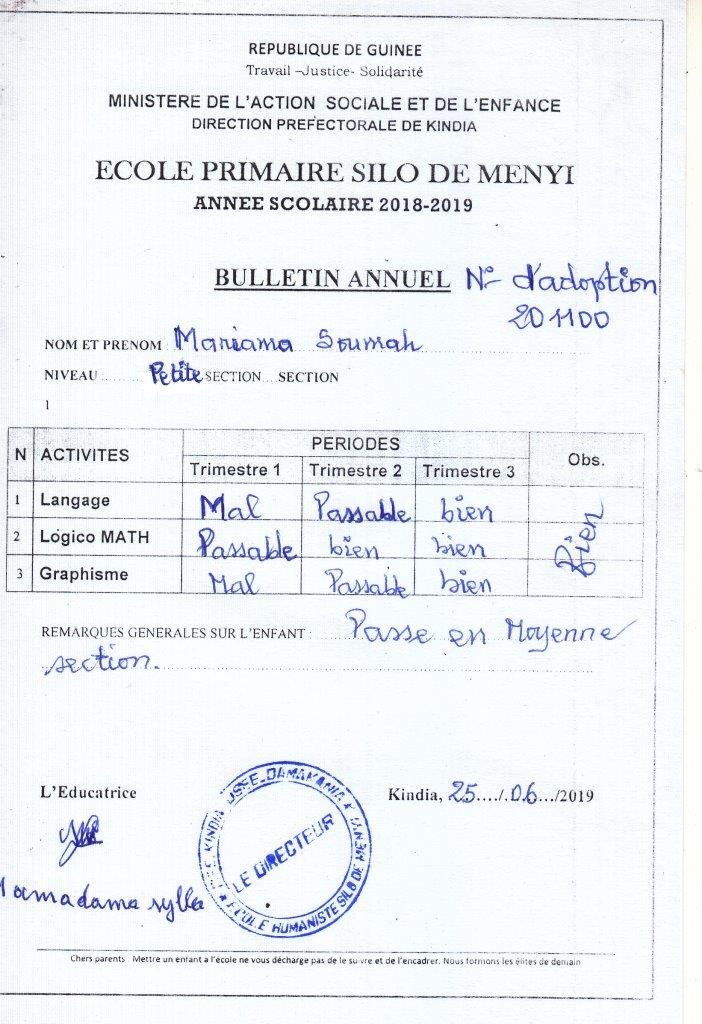 REPUBLIQUE DE GUINEE
Travail –Justice- Solidarité
MINISTERE DE L'ACTION SOCIALE ET DE L'ENFANCE
DIRECTION PREFECTORALE DE KINDIA
ECOLE PRIMAIRE SILO DE MENYI
ANNEE SCOLAIRE 2018-2019
BULLETIN ANNUEL N° d'adoption
201100
NOM ET PRENOM : Mariama Soumah
NIVEAU : Petite SECTION SECTION
1
N ACTIVITES PERIODES Obs.
Trimestre 1 Trimestre 2 Trimestre 3
1 Langage Mal Passable bien
2 Lógico MATH Passable bien bien Bien
3 Graphisme Mal Passable bien
REMARQUES GENERALES SUR L'ENFANT : Passe en Moyenne
section.
L'Educatrice Kindia, 25..../.06.../2019
KINDIA
LE DIRECTEUR
ECOLE HUMANISTE SILO DE
amadama sylla
Chers parents Mettre un enfant a l'école ne vous décharge pas de le suivre et de l'encadrer. Nous formons les élites de demain